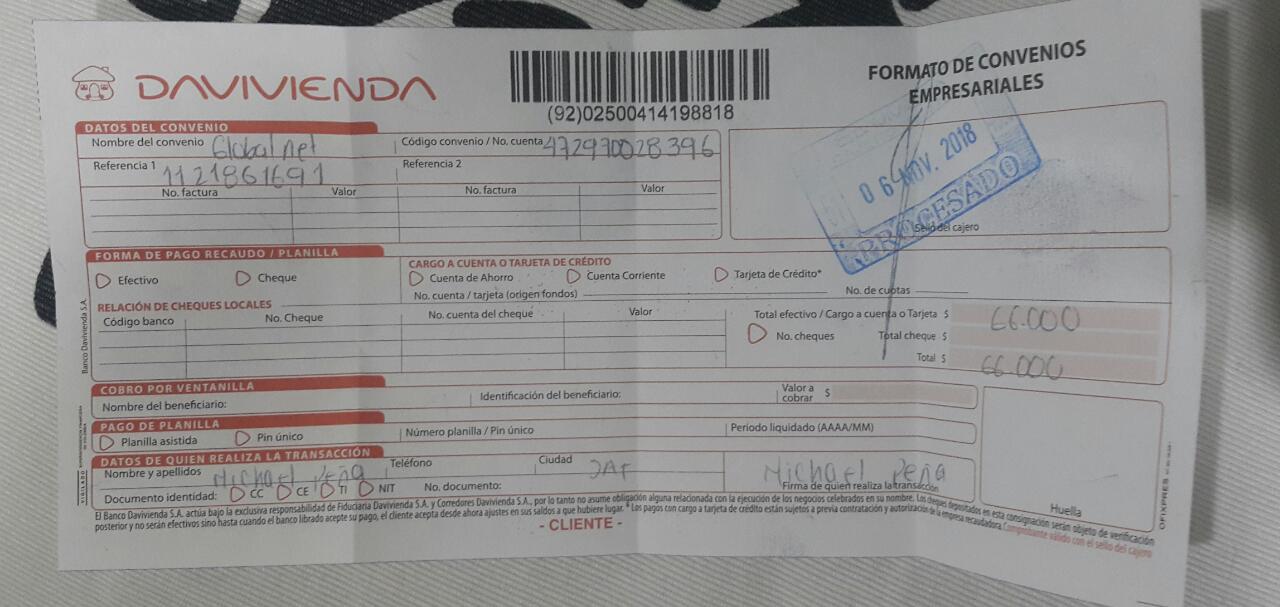 DAVIVIENDA
(92)02500414198818
FORMATO DE CONVENIOS
EMPRESARIALES
DATOS DEL CONVENIO
Nombre del convenio Global net Código convenio / No. cuenta 472970028396
Referencia 1 1121861691 Referencia 2
No. factura Valor No. factura Valor
06 NOV. 2018
PROCESADO
Sello del cajero
FORMA DE PAGO RECAUDO / PLANILLA
Efectivo Cheque
CARGO A CUENTA O TARJETA DE CRÉDITO
Cuenta de Ahorro Cuenta Corriente Tarjeta de Crédito*
No. cuenta / tarjeta (origen fondos) No. de cuotas
RELACIÓN DE CHEQUES LOCALES
Código banco No. Cheque No. cuenta del cheque Valor
Total efectivo / Cargo a cuenta o Tarjeta $ 66.000
No. cheques Total cheque $
Total $ 66.000
COBRO POR VENTANILLA
Nombre del beneficiario: Identificación del beneficiario: Valor a cobrar $
PAGO DE PLANILLA
Planilla asistida Pin único Número planilla / Pin único Período liquidado (AAAA/MM)
DATOS DE QUIEN REALIZA LA TRANSACCIÓN
Nombre y apellidos Michael Peña Teléfono Ciudad Michael Peña
Firma de quien realiza la transacción
Documento identidad: CC CE TI NIT No. documento:
Huella
El Banco Davivienda S.A. actúa bajo la exclusiva responsabilidad de Fiduciaria Davivienda S.A. y Corredores Davivienda S.A., por lo tanto no asume obligación alguna relacionada con la ejecución de los negocios celebrados en su nombre. Los cheques depositados en esta consignación serán objeto de verificación
posterior y no serán efectivos sino hasta cuando el banco librado acepte su pago, el cliente acepta desde ahora ajustes en sus saldos a que hubiere lugar. * Los pagos con cargo a tarjeta de crédito están sujetos a previa contratación y autorización de la empresa recaudadora. Comprobante válido con el sello del cajero
- CLIENTE -
Banco Davivienda S.A.
VIGILADO
OFIXPRES